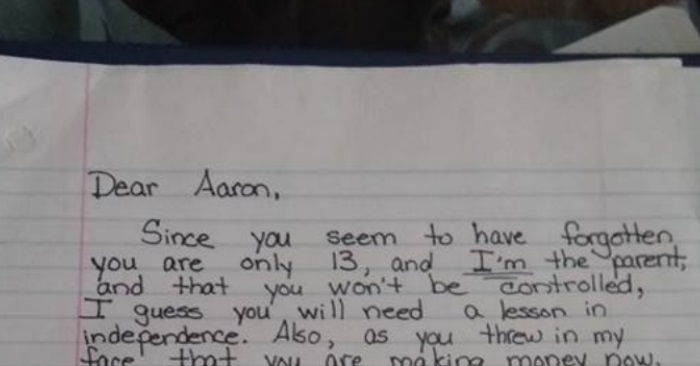 Dear Aaron,
Since you seem to have forgotten
you are only 13, and I'm the parent,
and that you won't be controlled,
I guess you will need a lesson in
independence. Also, as you threw in my
face that you are making money now,